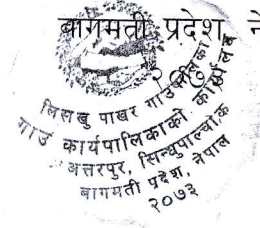 बागमती प्रदेश
लिसंखु पाखर गाउँपालिका
गाउँ कार्यपालिकाको कार्यालय
अत्तरपुर, सिन्धुपाल्चोक
बागमती प्रदेश, नेपाल
२०७३